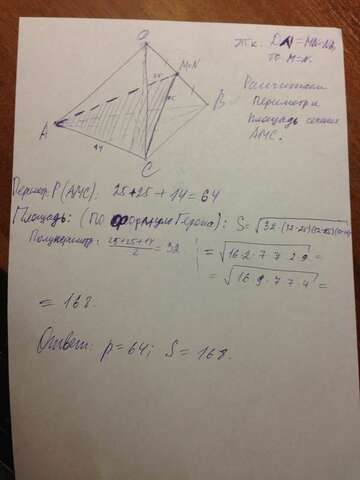 Т.к. DN=MN=NB,
то M=N.
D
M=N
25
25
B
A
14
C
Рассчитаем
периметр и
площадь сечения
AMC:
Перметр. P(AMC): 25+25+14=64
Площадь: (по формуле Герона): S=√32·(32-25)(32-25)(32-14)
Полупериметр: (25+25+14)/2=32
=√16·2·7·7·2·9=
=√16·9·7·7·4=
=168.
Ответ: p=64; S=168.